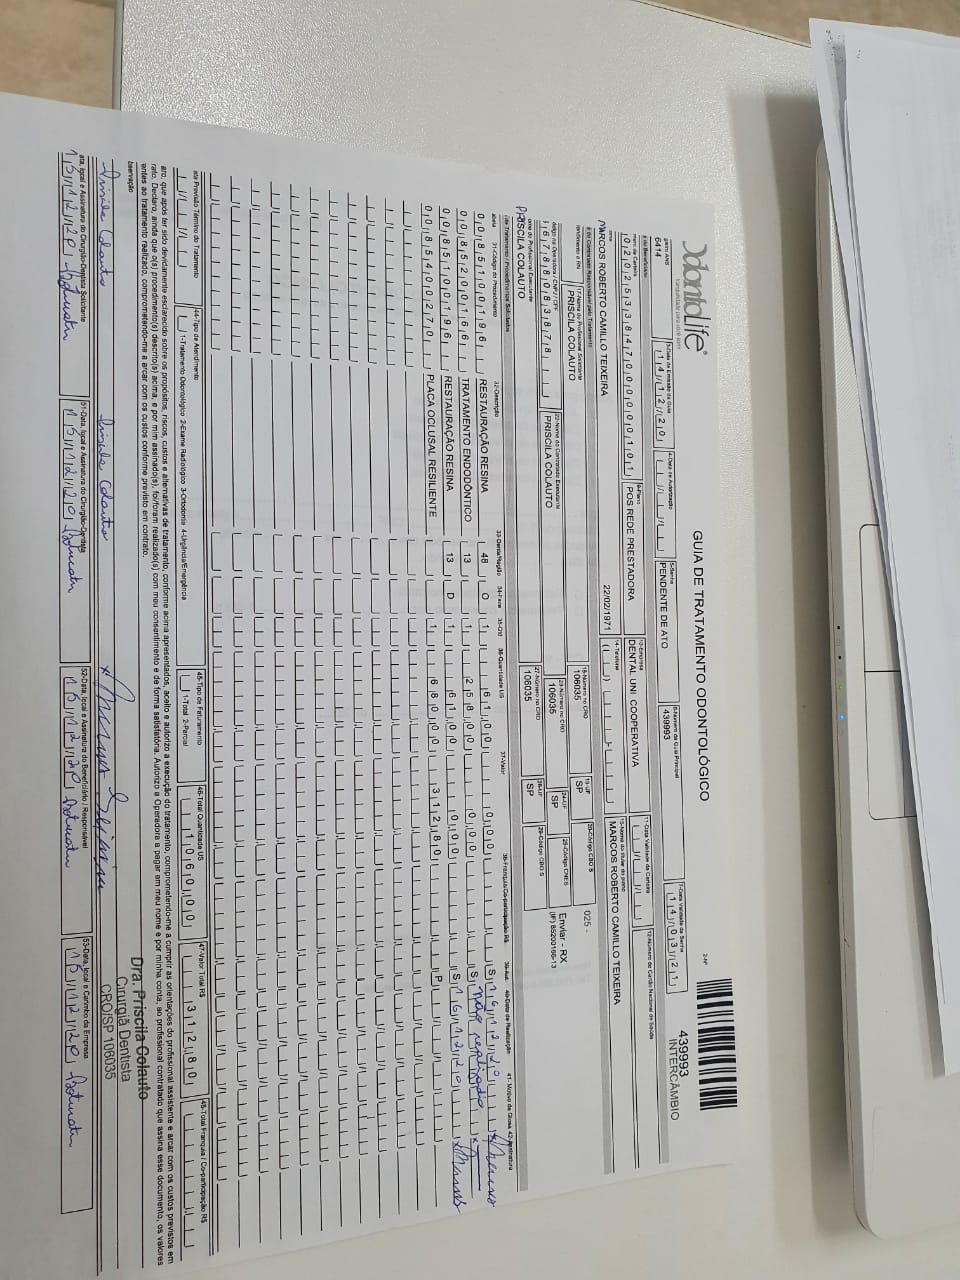 OdontoLife®
Tranquilidade para você sorrir
GUIA DE TRATAMENTO ODONTOLÓGICO
2-Nº
439993
INTERCÂMBIO
gistro ANS
6414
3-Data de Emissão da Guia
14/12/20
4-Data de Autorização
5-Senha
PENDENTE DE ATO
6-Número da Guia Principal
439993
7-Data Validade da Senha
14/03/21
mero da Carteira
9-Plano
POS REDE PRESTADORA
10-Empresa
DENTAL UNI COOPERATIVA
11-Data Validade da Carteira
12-Número do Cartão Nacional de Saúde
MARCOS ROBERTO CAMILLO TEIXEIRA
22/02/1971
14-Telefone
15-Nome do titular do plano
MARCOS ROBERTO CAMILLO TEIXEIRA
endimento a RN
17-Nome do Profissional Solicitante
PRISCILA COLAUTO
18-Número no CRO
106035
19-UF
SP
20-Código CBO S
025 -
ódigo na Operadora / CNPJ / CPF
22-Nome do Contratado Executante
PRISCILA COLAUTO
23-Número no CRO
106035
24-UF
SP
25-Código CNES
Enviar - 3 RX
(IF) 85200166-13
ome do Profissional Executante
PRISCILA COLAUTO
27-Número no CRO
106035
28-UF
SP
29-Código CBO S
abela 31-Código do Procedimento 32-Descrição 33-Dente/Região 34-Face 35-Qtd 36-Quantidade US 37-Valor 38-Franquia/Co-participação R$ 39-Aut 40-Data de Realização 41-Motivo da Glosa 42-Assinatura
00 85100196 RESTAURAÇÃO RESINA 48 O 1 61,00 0,00 S 16/12/20
00 85200166 TRATAMENTO ENDODÔNTICO 13 1 258,00 0,00 S não realizado
00 85100196 RESTAURAÇÃO RESINA 13 D 1 61,00 0,00 S 16/12/20
00 85400270 PLACA OCLUSAL RESILIENTE 1 680,00 312,80 P
ata Previsão Término do Tratamento
44-Tipo de Atendimento
1-Tratamento Odontológico 2-Exame Radiológico 3-Ortodontia 4-Urgência/Emergência
45-Tipo de Faturamento
1-Total 2-Parcial
46-Total Quantidade US
1060,00
47-Valor Total R$
312,80
Total Franquia / Co-participação R$
aro, que após ter sido devidamente esclarecido sobre os propósitos, riscos, custos e alternativas de tratamento, conforme acima apresentados, aceito e autorizo a execução do tratamento, comprometendo-me a cumprir as orientações do profissional assistente e arcar com os custos previstos em
rato. Declaro, ainda que o(s) procedimento(s) descrito(s) acima, e por mim assinado(s), foi/foram realizado(s) com meu consentimento e de forma satisfatória. Autorizo a Operadora a pagar em meu nome e por minha conta, ao profissional contratado que assina esse documento, os valores
entes ao tratamento realizado, comprometendo-me a arcar com os custos conforme previsto em contrato.
bservação
Dra. Priscila Colauto
Cirurgiã Dentista
CRO/SP 106035
ata, local e Assinatura do Cirurgião-Dentista Solicitante
51-Data, local e Assinatura do Cirurgião-Dentista
52-Data, local e Assinatura do Beneficiário / Responsável
53-Data, local e Carimbo da Empresa